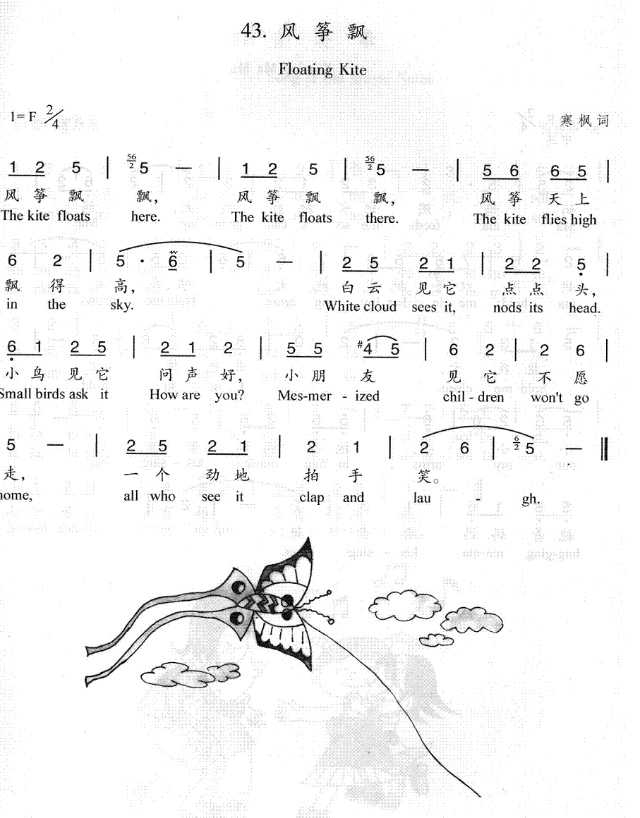 43. 风 筝 飘
Floating Kite
1=F 2/4
寒 枫 词
1 2 5 | 56/2 5 — | 1 2 5 | 56/2 5 — | 5 6 6 5 |
风 筝 飘 飘, 风 筝 飘 飘, 风 筝 天 上
The kite floats here. The kite floats there. The kite flies high
6 2 | 5 · 6 | 5 — | 2 5 2 1 | 2 2 5 |
飘 得 高, 白 云 见 它 点 点 头,
in the sky. White cloud sees it, nods its head.
6 1 2 5 | 2 1 2 | 5 5 #4 5 | 6 2 | 2 6 |
小 鸟 见 它 问 声 好, 小 朋 友 见 它 不 愿
Small birds ask it How are you? Mes-mer - ized chil - dren won't go
5 — | 2 5 2 1 | 2 1 | 2 6 | 6/2 5 — ||
走, 一 个 劲 地 拍 手 笑。
home, all who see it clap and lau - gh.